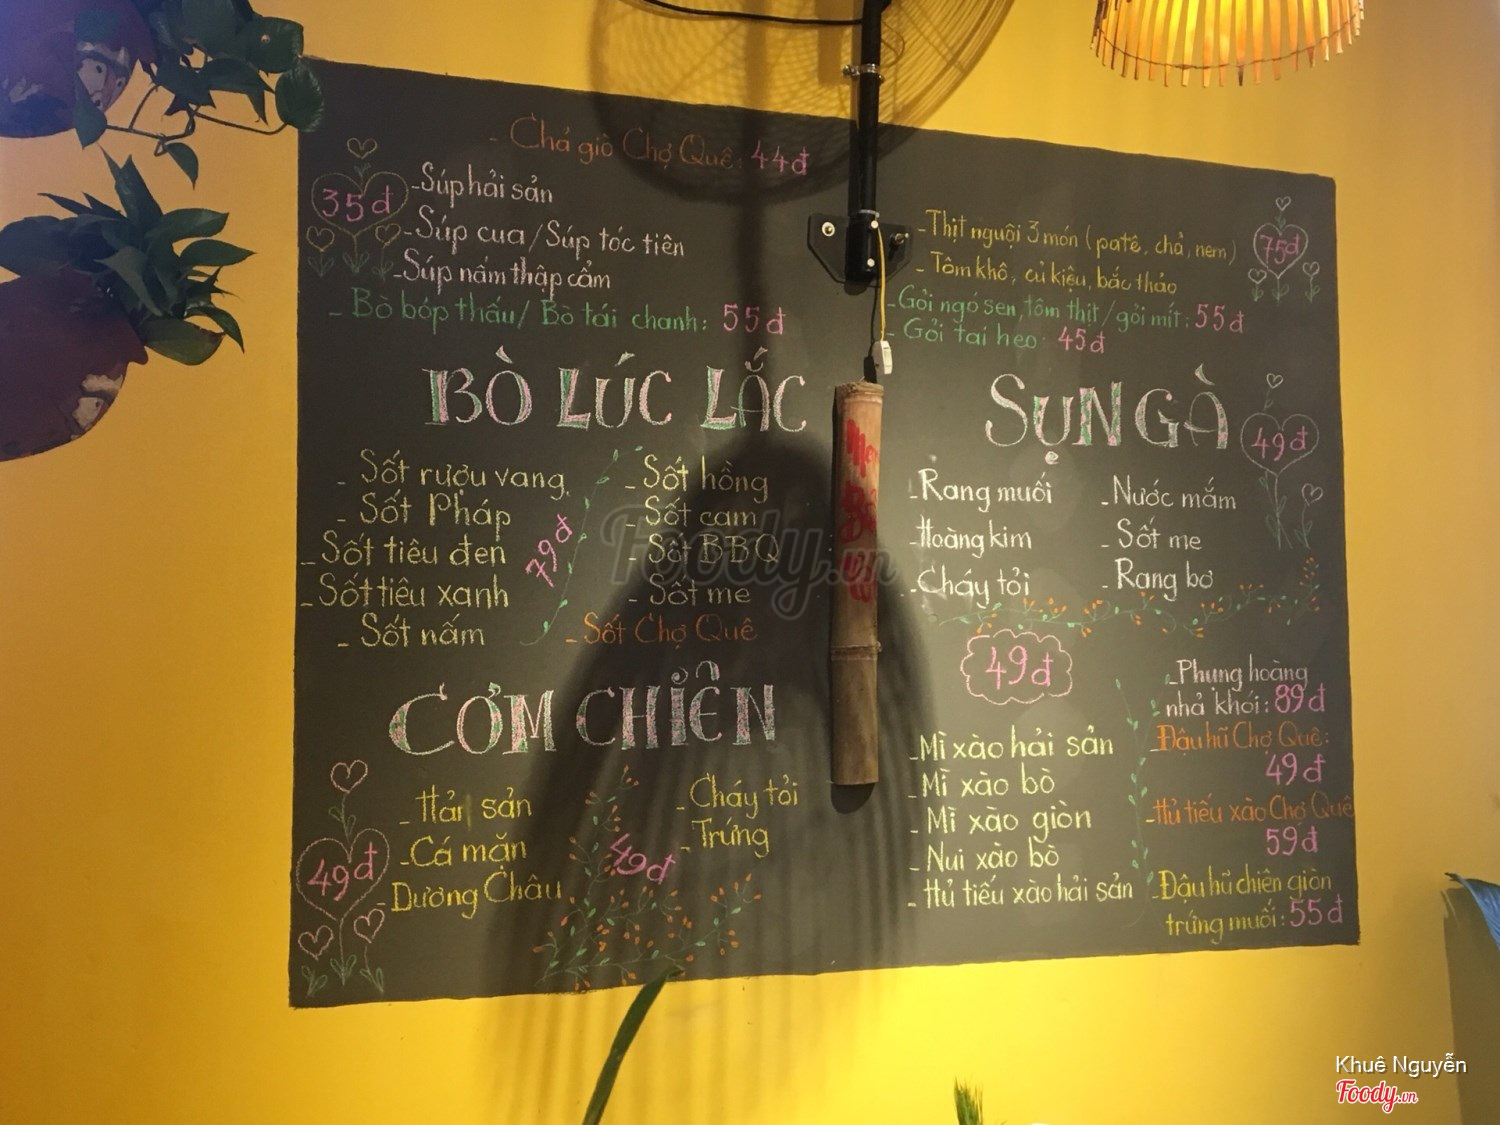 - Chả giò Chợ Quê: 44đ
35đ
- Súp hải sản
- Súp cua / Súp tóc tiên
- Súp nấm thập cẩm
- Bò bóp thấu / Bò tái chanh: 55đ
BÒ LÚC LẮC
- Sốt rượu vang
- Sốt Pháp
- Sốt tiêu đen
- Sốt tiêu xanh
- Sốt nấm
79đ
- Sốt hồng
- Sốt cam
- Sốt BBQ
- Sốt me
- Sốt Chợ Quê
CƠM CHIÊN
49đ
- Hải sản
- Cá mặn
- Dương Châu
49đ
- Cháy tỏi
- Trứng
- Thịt nguội 3 món (patê, chả, nem)
- Tôm khô, củ kiệu, bắc thảo
75đ
- Gỏi ngó sen, tôm thịt / gỏi mít: 55đ
- Gỏi tai heo: 45đ
SỤN GÀ
49đ
- Rang muối
- Hoàng kim
- Cháy tỏi
- Nước mắm
- Sốt me
- Rang bơ
49đ
- Mì xào hải sản
- Mì xào bò
- Mì xào giòn
- Nui xào bò
- Hủ tiếu xào hải sản
- Phụng hoàng
nhả khói: 89đ
- Đậu hũ Chợ Quê:
49đ
- Hủ tiếu xào Chợ Quê
59đ
- Đậu hũ chiên giòn
trứng muối: 55đ
Foody.vn
Khuê Nguyễn
Foody.vn